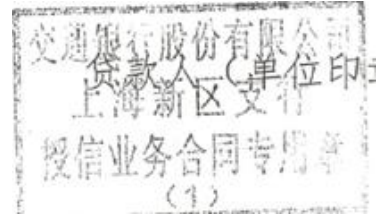 交通银行股份有限公司
贷款人（单位印章
上海新区支行
授信业务合同专用章
(1)